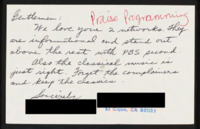 Gentlemen:
Praise Programming
We love your 2 networks. They
are informational and stand out
above the rest with PBS second
Also the classical music is
just right. Forget the complainers
and keep the classics.
Sincerely
El Cajon, CA